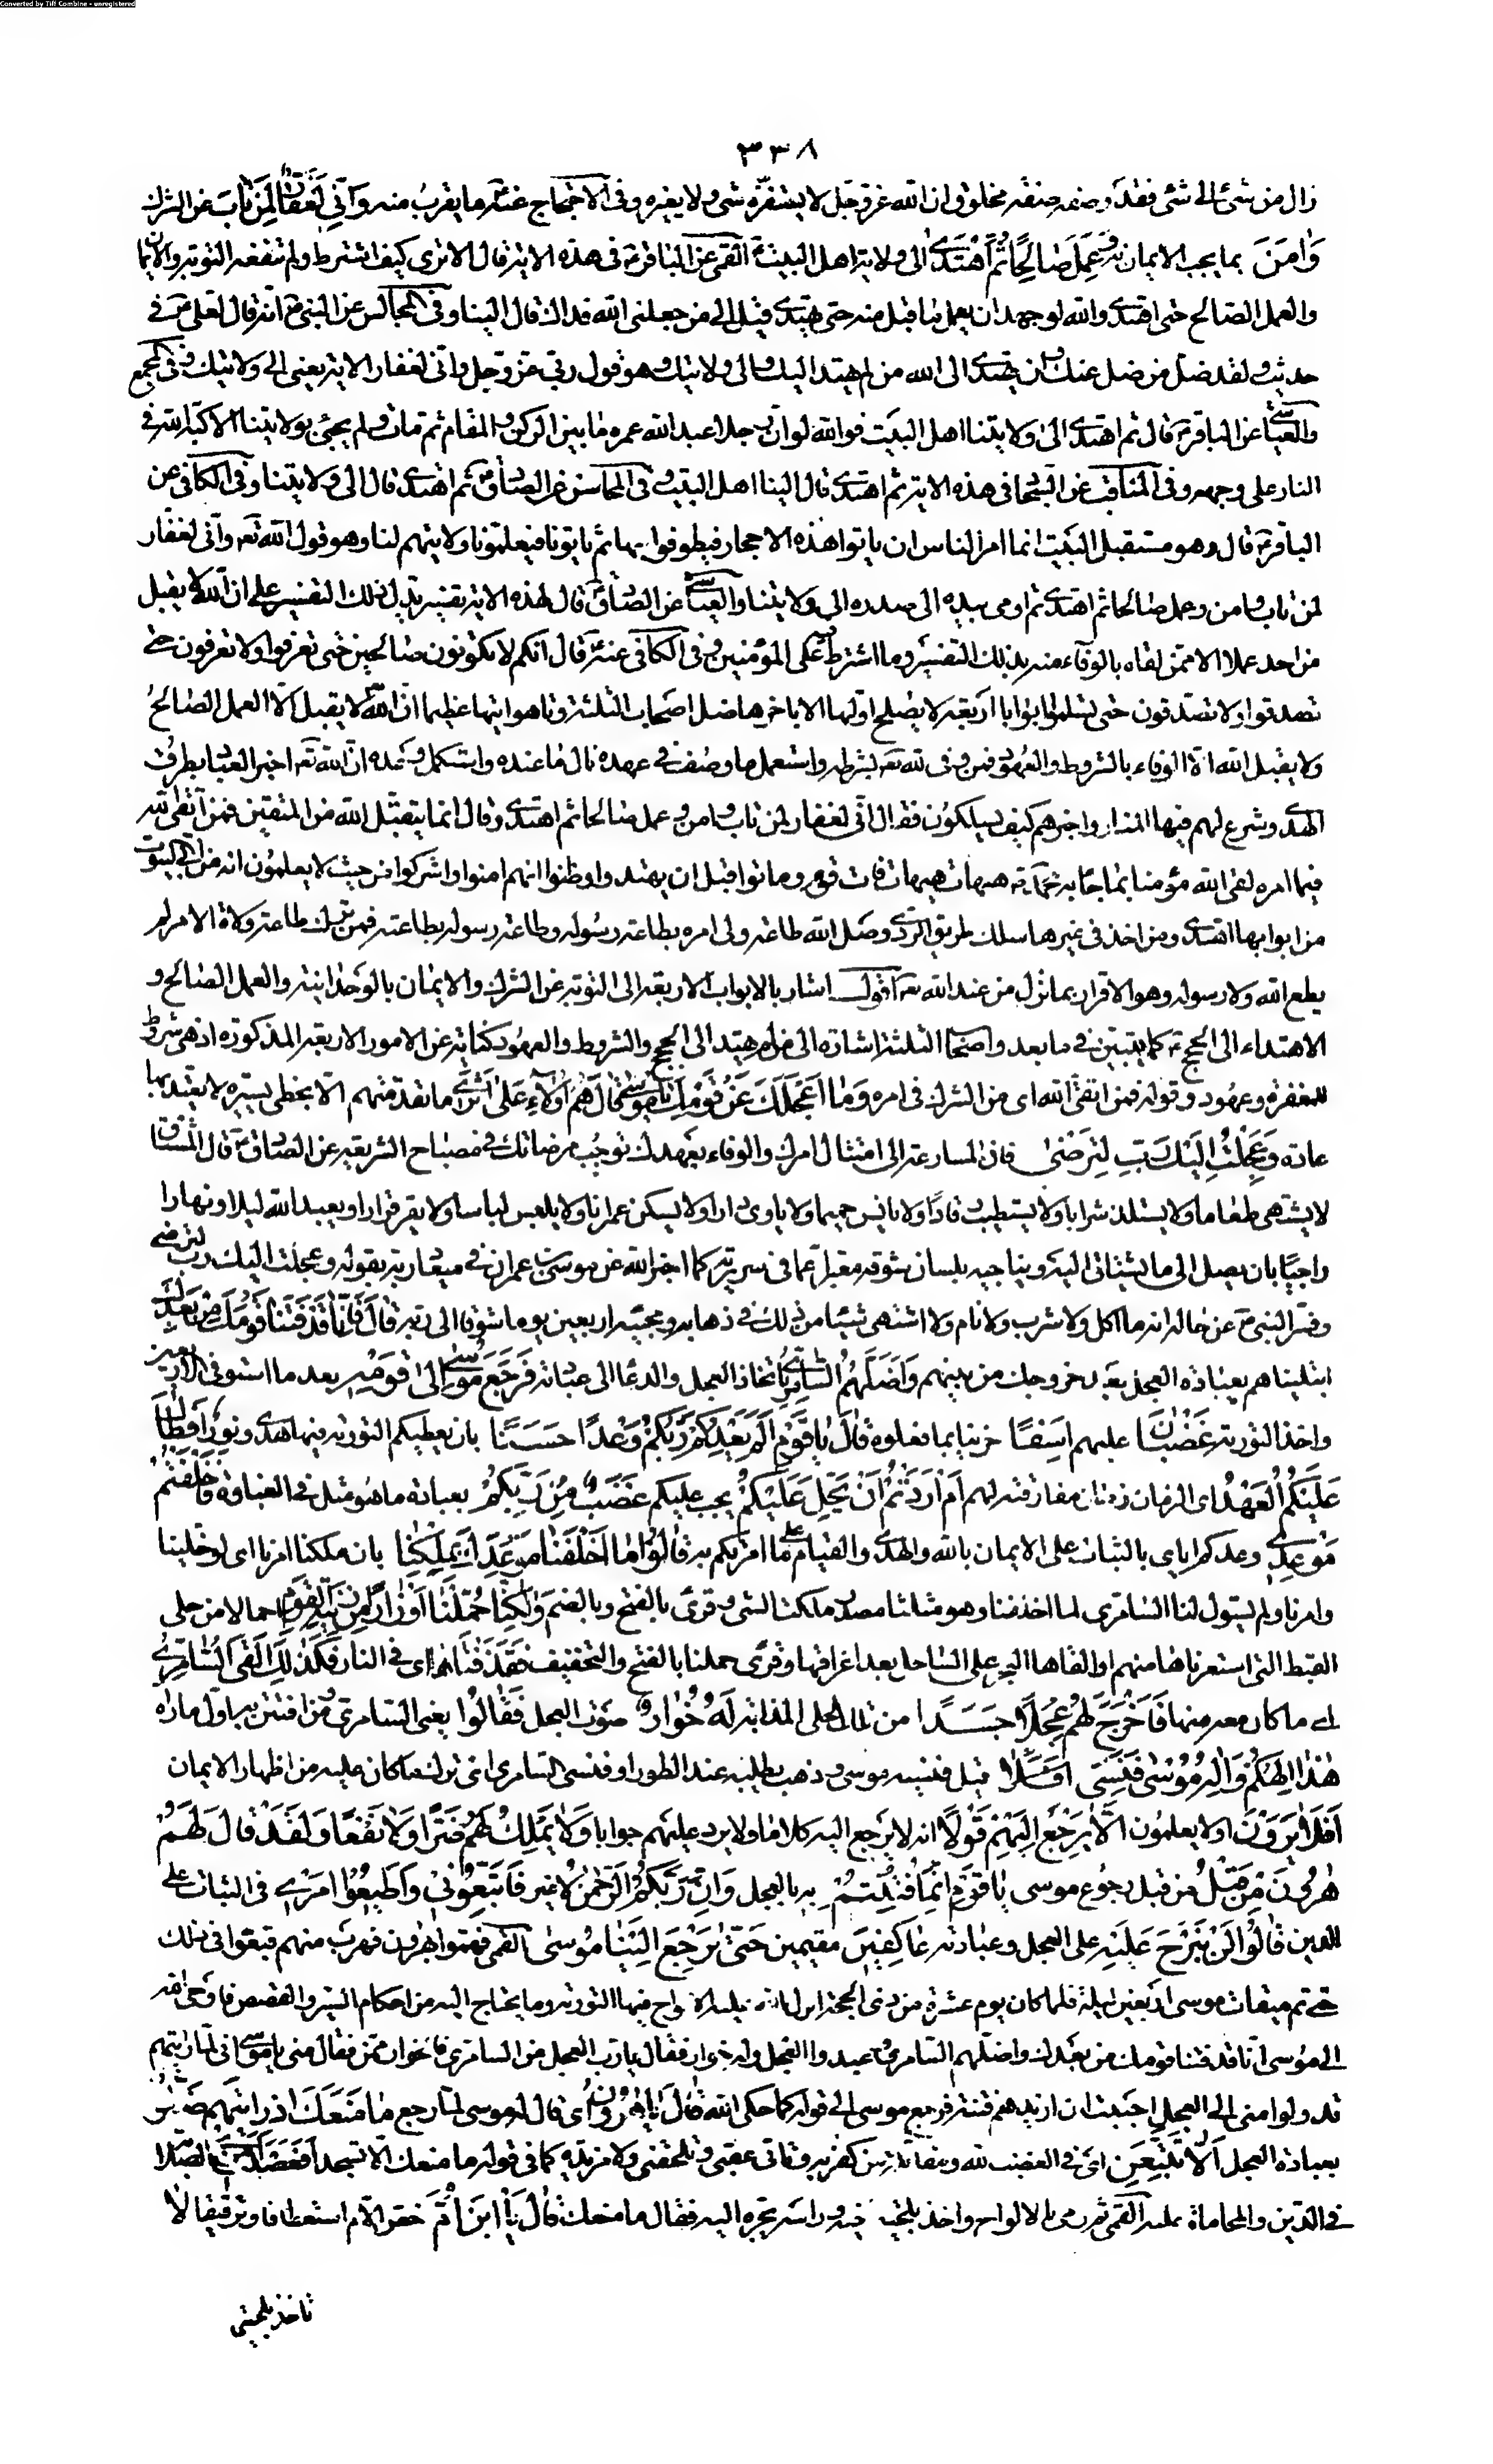 Converted by Tiff Combine - unregistered
٣٣٨
زال من شئ الى شئ فقد وصفه صفة مخلوق وان الله عز وجل لا يستفزه شئ ولا يغيره وفى الاحتجاج عنه ما يقرب منه وَاِنِّي لَغَفَّارٌ لِمَنْ تٰابَ عن الشرك
وَاٰمَنَ بما يجب الايمان به وَعَمِلَ صٰالِحًا ثُمَّ اهْتَدىٰ الى ولاية اهل البيت القمى عن الباقر فى هذه الاية قال الا ترى كيف اشترط ولم تنفعه التوبة والايمان
والعمل الصالح حتى اهتدى والله لو جهد ان يعمل ما قبل منه حتى يهتدى قيل الى من جعلنى الله فداك قال الينا وفى المجالس عن النبى انه قال لعلى فى
حديث ولقد ضل من ضل عنك ولن يهتدى الى الله من لم يهتد اليك والى ولايتك وهو قول ربى عز وجل وانى لغفار الاية يعنى الى ولايتك وفى المجمع
والعياشى عن الباقر قال ثم اهتدى الى ولايتنا اهل البيت فوالله لو ان رجلا عبد الله عمره ما بين الركن والمقام ثم مات ولم يجئ بولايتنا الا اكبه الله فى
النار على وجهه وفى المناقب عن السجاد فى هذه الاية ثم اهتدى قال الينا اهل البيت وفى المحاسن عن الصادق ثم اهتدى قال الى ولايتنا وفى الكافى عن
الباقر قال وهو مستقبل البيت انما امر الناس ان ياتوا هذه الاحجار فيطوفوا بها ثم ياتونا فيعلمونا ولايتهم لنا وهو قول الله تعه وانى لغفار
لمن تاب وامن وعمل صالحا ثم اهتدى ثم اومى بيده الى صدره الى ولايتنا والعياشى عن الصادق قال لهذه الاية تفسير يدل ذلك التفسير على ان الله لا يقبل
من احد عملا الا ممن لقاه بالوفاء منه بذلك التفسير وما اشترط على المؤمنين وفى الكافى عنه قال انكم لا تكونون صالحين حتى تعرفوا ولا تعرفون حتى
تصدقوا ولا تصدقون حتى تسلموا ابوابا اربعة لا يصلح اولها الا باخرها ضل اصحاب الثلثة وتاهوا تيها عظيما ان الله لا يقبل الا العمل الصالح
ولا يقبل الله الا الوفاء بالشروط والعهود فمن وفى لله تعه بشرطه واستعمل ما وصف فى عهده نال ما عنده واستكمل وعده ان الله تعه اخبر العباد بطرق
الهدى وشرع لهم فيها المنار واخبرهم كيف يسلكون فقال انى لغفار لمن تاب وامن وعمل صالحا ثم اهتدى وقال انما يتقبل الله من المتقين فمن اتقى الله
فيما امره لقى الله مؤمنا بما جاء به محمد هيهات هيهات فات قوم وماتوا قبل ان يهتدوا وظنوا انهم امنوا واشركوا من حيث لا يعلمون انه من اتى البيوت
من ابوابها اهتدى ومن اخذ فى غيرها سلك طريق الردى وصل الله طاعة ولى امره بطاعة رسوله وطاعة رسوله بطاعته فمن ترك طاعة ولاة الامر لم
يطع الله ولا رسوله وهو الاقرار بما نزل من عند الله تعه اقول اشار بالابواب الاربعة الى التوبة عن الشرك والايمان بالوحدانية والعمل الصالح و
الاهتداء الى الحجج كما يتبين فى ما بعد واصحاب الثلثة اشارة الى من لم يهتد الى الحجج والشروط والعهود كناية عن الامور الاربعة المذكورة اذ هى شروط
للمغفرة وعهود وقوله فمن اتقى الله اى من الشرك فى امره وَمٰا اَعْجَلَكَ عَنْ قَوْمِكَ يٰا مُوسىٰ قٰالَ هُمْ اُولاٰءِ عَلىٰ اَثَرِي ما تقدمتهم الا بخطى يسيرة لا يعتد بها
عادة وَعَجِلْتُ اِلَيْكَ رَبِّ لِتَرْضىٰ فان المسارعة الى امتثال امرك والوفاء بعهدك توجب مرضاتك فى مصباح الشريعة عن الصادق قال المشتاق
لا يشتهى طعاما ولا يستلذ شرابا ولا يستطيب رقادا ولا يانس حميما ولا ياوى دارا ولا يسكن عمرانا ولا يلبس لباسا ولا يقر قرارا ويعبد الله ليلا ونهارا
راجيا بان يصل الى ما يشتاق اليه ويناجيه بلسان شوقه معبرا عما فى سريرته كما اخبر الله عن موسى بن عمران فى ميعاد ربه بقوله وعجلت اليك رب لترضى
وفسر النبى عن حاله انه ما اكل ولا شرب ولا نام ولا اشتهى شيئا من ذلك فى ذهابه ومجيئه اربعين يوما شوقا الى ربه قٰالَ فَاِنّٰا قَدْ فَتَنّٰا قَوْمَكَ مِنْ بَعْدِكَ
ابتليناهم بعبادة العجل بعد خروجك من بينهم وَاَضَلَّهُمُ السّٰامِرِيُّ باتخاذ العجل والدعا الى عبادته فَرَجَعَ مُوسىٰ اِلىٰ قَوْمِهِ بعد ما استوفى الاربعين
واخذ التورية غَضْبٰانَ عليهم اَسِفًا حزينا بما فعلوه قٰالَ يٰا قَوْمِ اَلَمْ يَعِدْكُمْ رَبُّكُمْ وَعْدًا حَسَنًا بان يعطيكم التورية فيها هدى ونور اَفَطٰالَ
عَلَيْكُمُ الْعَهْدُ اى الزمان زمان مفارقته لهم اَمْ اَرَدْتُمْ اَنْ يَحِلَّ عَلَيْكُمْ يجب عليكم غَضَبٌ مِنْ رَبِّكُمْ بعبادة ما هو مثل فى الغباوة فَاَخْلَفْتُمْ
مَوْعِدِي وعدكم اياى بالثبات على الايمان بالله والهدى والقيام على ما امرتكم به قٰالُوا مٰا اَخْلَفْنٰا مَوْعِدَكَ بِمَلْكِنٰا بان ملكنا امرنا اى لو خلينا
وامرنا ولم يسول لنا السامرى لما اخلفنا وهو مثلثا مصدر ملكت الشئ وقرئ بالفتح وبالضم وَلٰكِنّٰا حُمِّلْنٰا اَوْزٰارًا مِنْ زِينَةِ الْقَوْمِ احمالا من حلى
القبط التى استعرناها منهم او القاها البحر على الساحل بعد اغراقهم وقرئ حملنا بالفتح والتخفيف فَقَذَفْنٰاهٰا اى فى النار فَكَذٰلِكَ اَلْقَى السّٰامِرِيُّ
اى ما كان معه منها فَاَخْرَجَ لَهُمْ عِجْلًا جَسَدًا من تلك الحلى المذابة لَهُ خُوٰارٌ صوت العجل فَقٰالُوا يعنى السامرى ومن افتتن به اول ما راه
هٰذٰا اِلٰهُكُمْ وَاِلٰهُ مُوسىٰ فَنَسِيَ قيل فنسيه موسى وذهب يطلبه عند الطور او فنسى السامرى اى ترك ما كان عليه من اظهار الايمان
اَفَلاٰ يَرَوْنَ اولا يعلمون اَلّٰا يَرْجِعُ اِلَيْهِمْ قَوْلًا انه لا يرجع اليه كلاما ولا يرد عليهم جوابا وَلاٰ يَمْلِكُ لَهُمْ ضَرًّا وَلاٰ نَفْعًا وَلَقَدْ قٰالَ لَهُمْ
هٰرُونُ مِنْ قَبْلُ من قبل رجوع موسى يٰا قَوْمِ اِنَّمٰا فُتِنْتُمْ بِهِ بالعجل وَاِنَّ رَبَّكُمُ الرَّحْمٰنُ لا غير فَاتَّبِعُونِي وَاَطِيعُوا اَمْرِي فى الثبات على
الدين قٰالُوا لَنْ نَبْرَحَ عَلَيْهِ على العجل وعبادته عٰاكِفِينَ مقيمين حَتّٰى يَرْجِعَ اِلَيْنٰا مُوسىٰ القمى فهموا بهرون فهرب منهم فبقوا فى ذلك
حتى تم ميقات موسى اربعين ليلة فلما كان يوم عشرة من ذى الحجة انزل الله عليه الالواح فيها التورية وما يحتاج اليه من احكام السير والقصص فاوحى الله
الى موسى انا قد فتنا قومك من بعدك واضلهم السامرى وعبدوا العجل وله خوار فقال يا رب العجل من السامرى فالخوار ممن فقال منى يا موسى انى لما رايتهم
قد ولوا منى الى العجل اجبت ان ازيدهم فتنة فرجع موسى الى قوله كما حكى الله قٰالَ يٰا هٰرُونُ اى قال له موسى لما رجع مٰا مَنَعَكَ اِذْ رَاَيْتَهُمْ ضَلُّوا
بعبادة العجل اَلّٰا تَتَّبِعَنِ اى فى الغضب لله ومقاتلة من كفر به وتاتى عقبى وتلحقنى ولا مزيدة كما فى قوله ما منعك الا تسجد اَفَعَصَيْتَ اَمْرِي بالصلابة
فى الدين والمحاماة عليه القمى ثم رمى بالالواح واخذ بلحية اخيه وراسه يجره اليه فقال ما منعك قٰالَ يَا ابْنَ اُمَّ خص الام استعطافا وترقيقا لاٰ
تاخذ بلحيتى